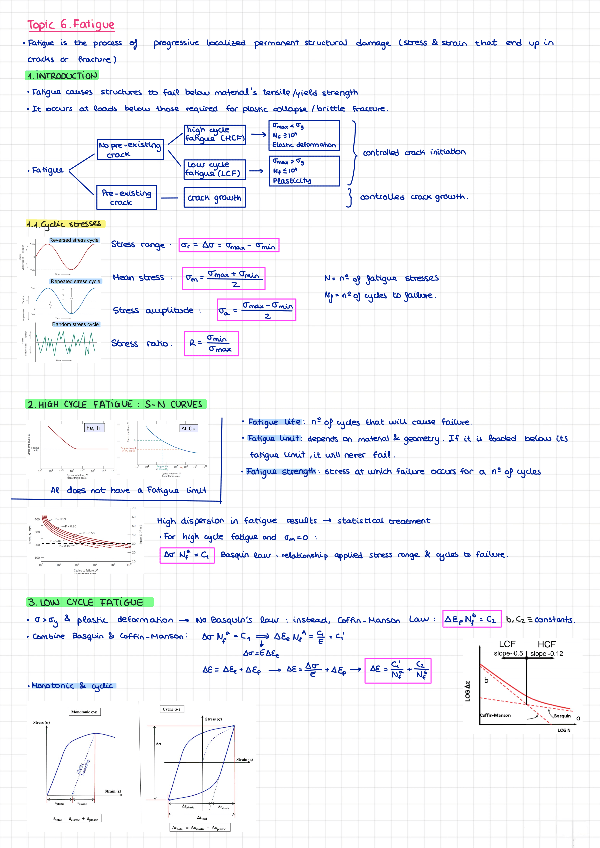 Topic 6. Fatigue
• Fatigue is the process of progressive localized permanent structural damage (stress & strain that end up in
cracks or fracture)
1. INTRODUCTION
• Fatigue causes structures to fail below material's tensile/yield strength
• It occurs at loads below those required for plastic collapse/brittle fracture.
• Fatigue
No pre-existing crack
high cycle fatigue (HCF)
σmax < σy
Nf ≥ 10⁴
Elastic deformation
Low cycle fatigue (LCF)
σmax > σy
Nf ≤ 10⁴
Plasticity
controlled crack initiation
Pre-existing crack
crack growth
controlled crack growth.
1.1. Cyclic stresses
Reversed stress cycle
Stress range: σr = Δσ = σmax - σmin
Repeated stress cycle
Mean stress: σm = (σmax + σmin)/2
N = nº of fatigue stresses
Nf = nº of cycles to failure.
Stress amplitude: σa = (σmax - σmin)/2
Random stress cycle
Stress ratio: R = σmin/σmax
2. HIGH CYCLE FATIGUE: S-N CURVES
• Fatigue life: nº of cycles that will cause failure.
• Fatigue limit: depends on material & geometry. If it is loaded below its
fatigue limit, it will never fail.
• Fatigue strength: stress at which failure occurs for a nº of cycles
Al does not have a Fatigue limit
High dispersion in fatigue results → statistical treatment
• For high cycle fatigue and σm=0:
Δσ Nf^a = C1 Basquin law: relationship applied stress range & cycles to failure.
3. LOW CYCLE FATIGUE
• σ>σy & plastic deformation → No Basquin's law: instead, Coffin-Manson Law: ΔEp Nf^b = C2 b, C2 ≡ constants.
• Combine Basquin & Coffin-Manson: Δσ Nf^a = C1 ⟹ ΔEe Nf^a = C1/E = C1'
Δσ = EΔEe
ΔE = ΔEe + ΔEp → ΔE = Δσ/E + ΔEp → ΔE = C1'/Nf^a + C2/Nf^b
LCF HCF
slope -0.5 slope -0.12
LOG Δε
b
Coffin-Manson
Basquin
a
LOG N
• Monotonic & cyclic
Monotonic σ-ε
Stress (σ)
Strain (ε)
Cyclic σ-ε
Stress (σ)
Strain (ε)